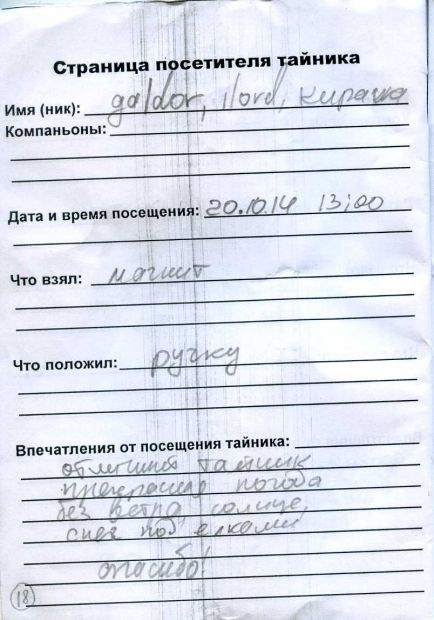 Страница посетителя тайника
Имя (ник): galdor, ilord, кирачка
Компаньоны:
Дата и время посещения: 20.10.14 13:00
Что взял: магнит
Что положил: ручку
Впечатления от посещения тайника:
отличный тайник
прекрасная погода
без ветра, солнце,
снег под елками
спасибо!
18